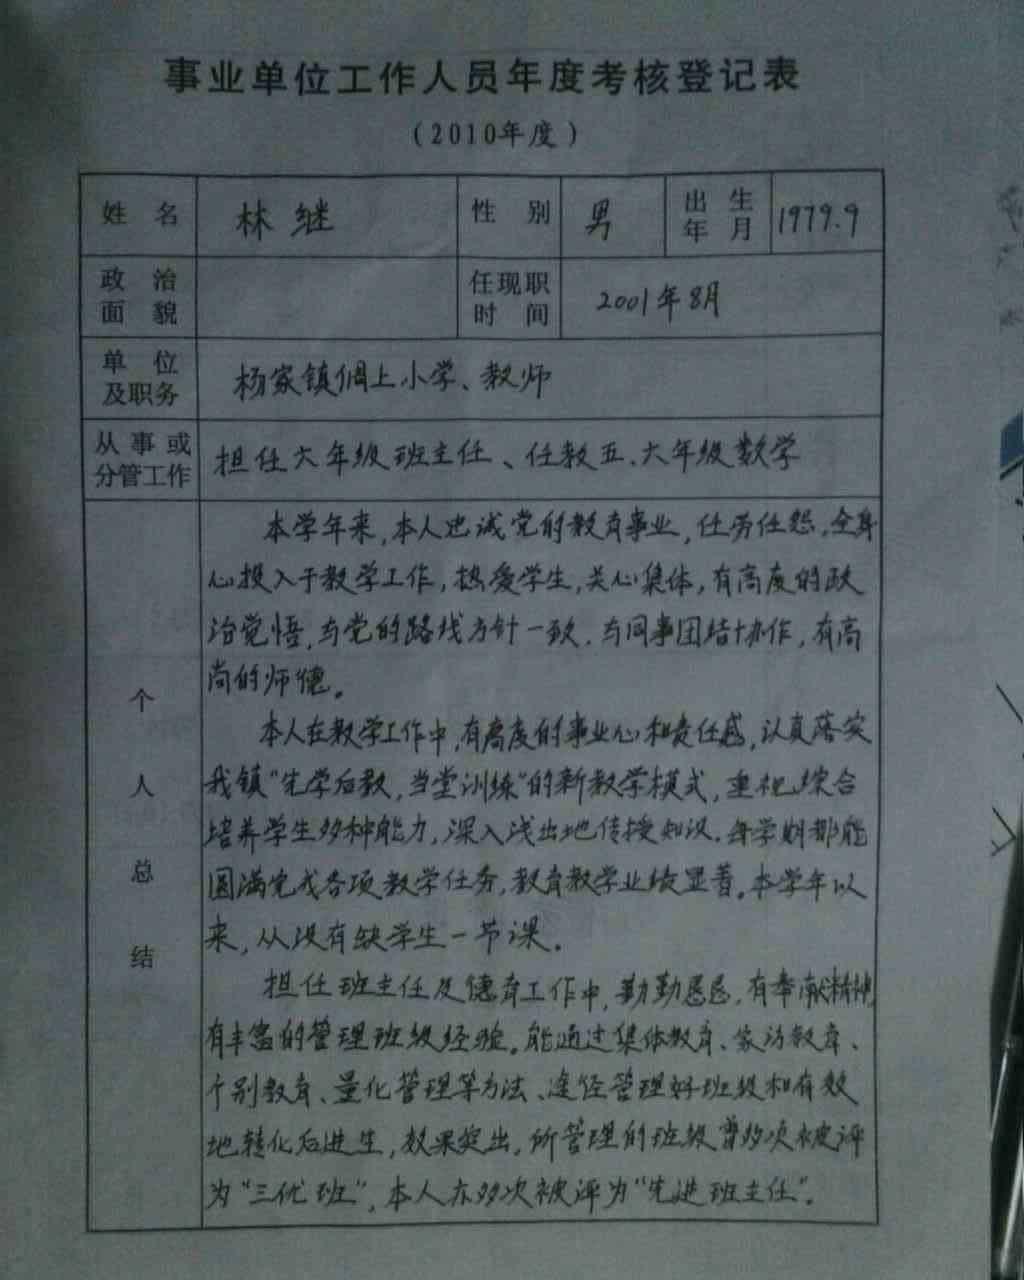 事业单位工作人员年度考核登记表
(2010年度)
姓名 林继 性别 男 出生年月 1979.9
政治面貌 任现职时间 2001年8月
单位及职务 杨家镇倜上小学、教师
从事或分管工作 担任六年级班主任、任教五、六年级数学
个人总结
本学年来,本人忠诚党的教育事业,任劳任怨,全身
心投入于教学工作,热爱学生,关心集体,有高度的政
治觉悟,与党的路线方针一致,与同事团结协作,有高
尚的师德。
本人在教学工作中,有高度的事业心和责任感,认真落实
我镇“先学后教,当堂训练”的新教学模式,重视综合
培养学生多种能力,深入浅出地传授知识。每学期都能
圆满完成各项教学任务,教育教学业绩显著。本学年以
来,从没有缺学生一节课。
担任班主任及德育工作中,勤勤恳恳,有奉献精神,
有丰富的管理班级经验。能通过集体教育、家访教育、
个别教育、量化管理等方法、途径管理好班级和有效
地转化后进生,效果突出,所管理的班级曾多次被评
为“三优班”,本人亦多次被评为“先进班主任”。